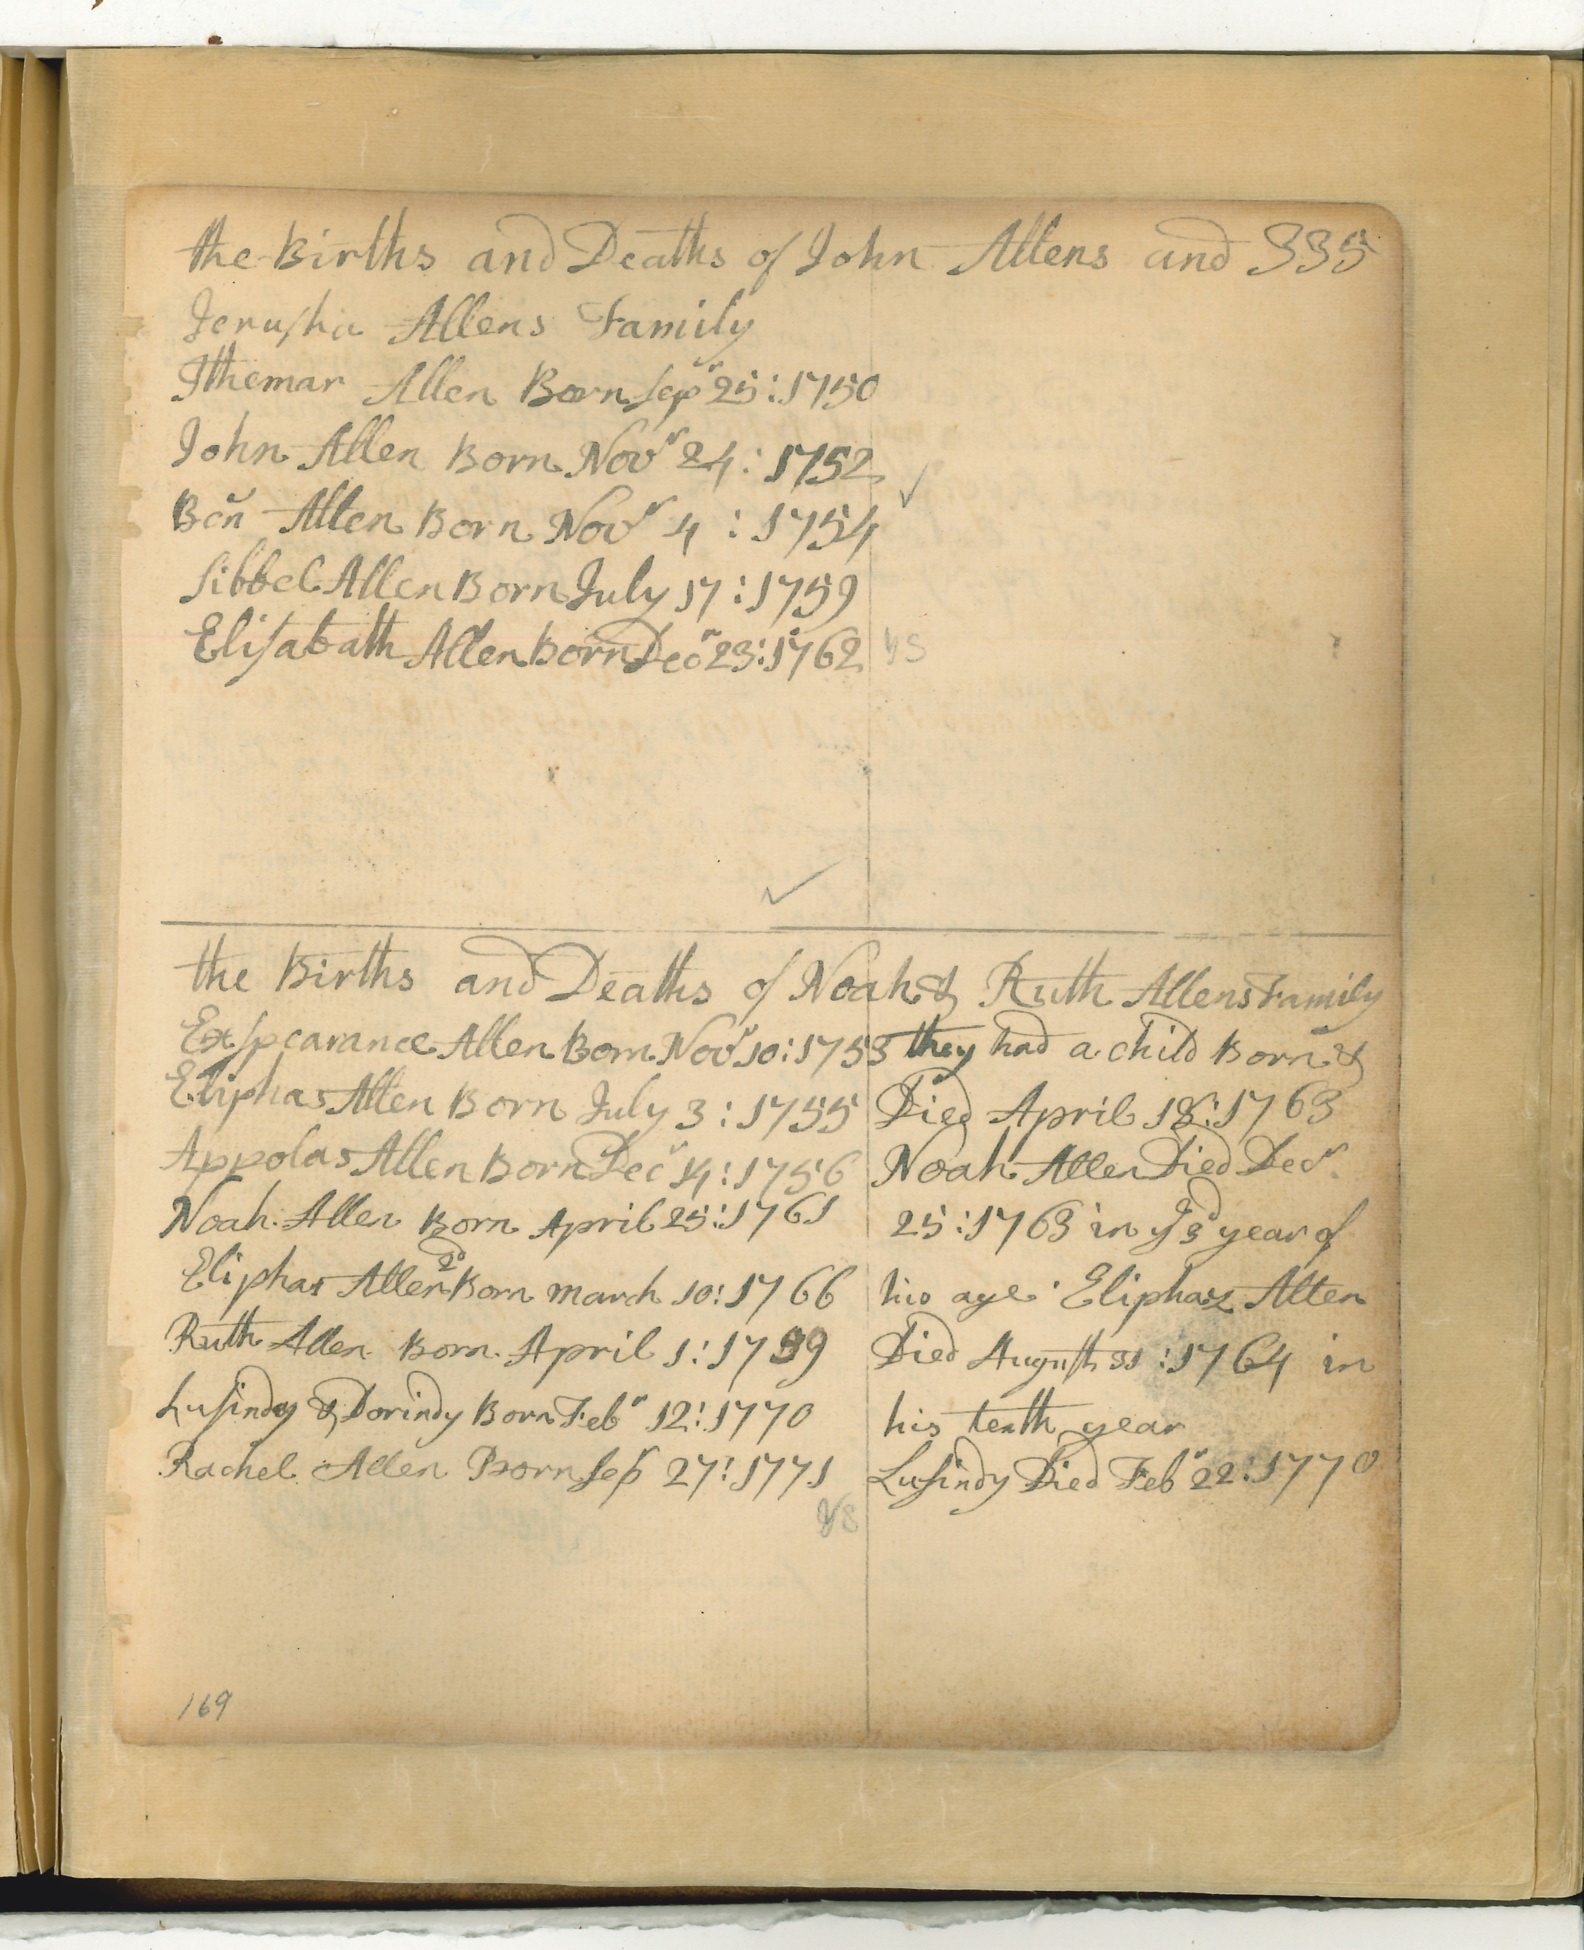 the Births and Deaths of John Allens and 335
Jeruſha Allens Family
Ithemar Allen Born Sepr 25:1750
John Allen Born Novr 24:1752
Ben̄ Allen Born Novr 4:1754
Sibbel Allen Born July 17:1759
Eliſabath Allen Born Decr 23:1762
the Births and Deaths of Noah & Ruth Allens Family
Exſpearance Allen Born Novr 10:1753
Eliphas Allen Born July 3:1755
Appolas Allen Born Decr 14:1756
Noah Allen Born April 25:1761
Eliphas Allen 2d Born march 10:1766
Ruth Allen Born April 1:1759
Luſindy & Dorindy Born Febr 12:1770
Rachel Allen Born Sepr 27:1771
they had a child Born &
Died April 18:1763
Noah Allen Died Decr
25:1763 in ye 3d year of
his age Eliphaz Allen
Died Auguſt 31:1764 in
his tenth year
Luſindy Died Febr 22:1770
169